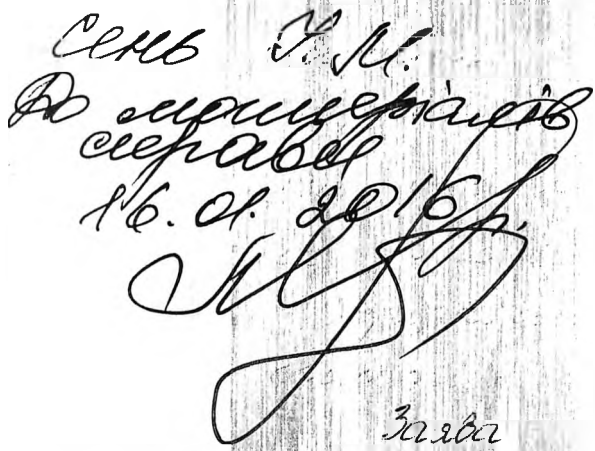 Сень У. М.
До матеріалів
справи
16.01.2016р.
Заява